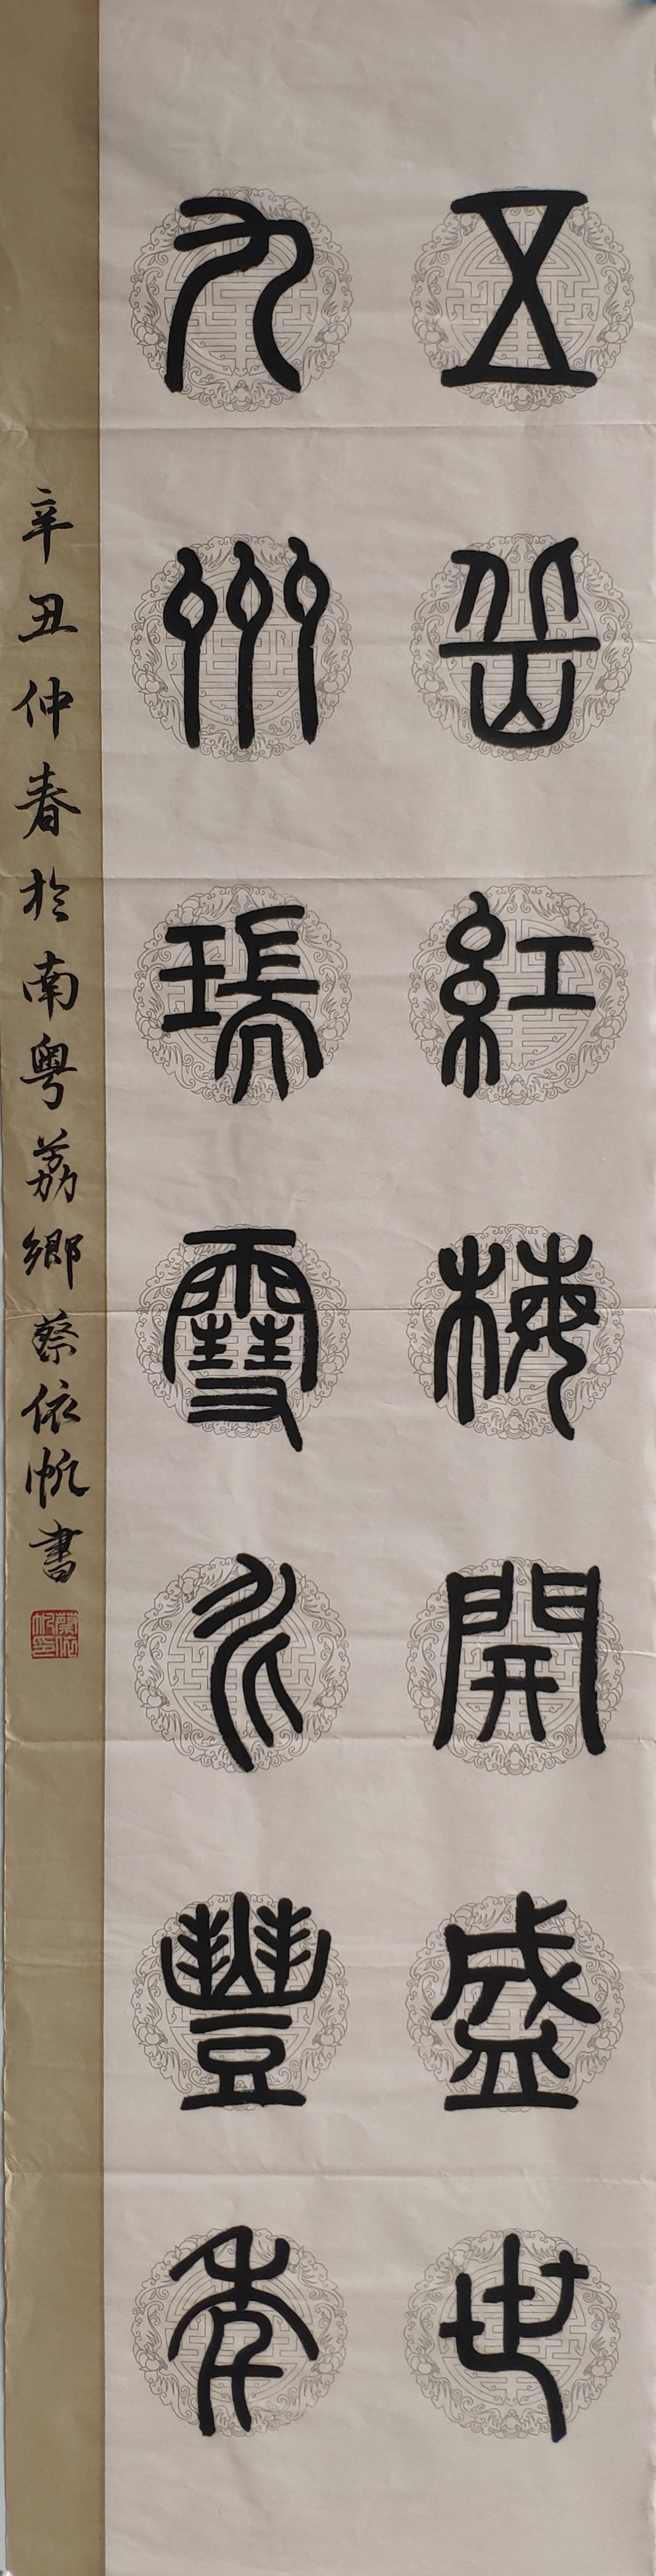 五岳紅梅開盛世
九州瑞雪兆豐年
辛丑仲春於南粵荔鄉蔡依帆書
蔡依帆印